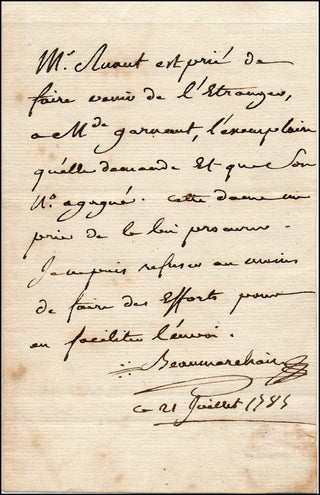 Mr. Ruault est prié de
faire venir de l'Etranger,
a Mde garnaut, l'exemplaire
qu'elle demande Et que Son
N° a gagné. cette dame me
prie de le lui procurer.
Je ne puis refuser au moins
de faire des Efforts pour
en faciliter l'envoi.
Beaumarchais
ce 21 Juillet 1785